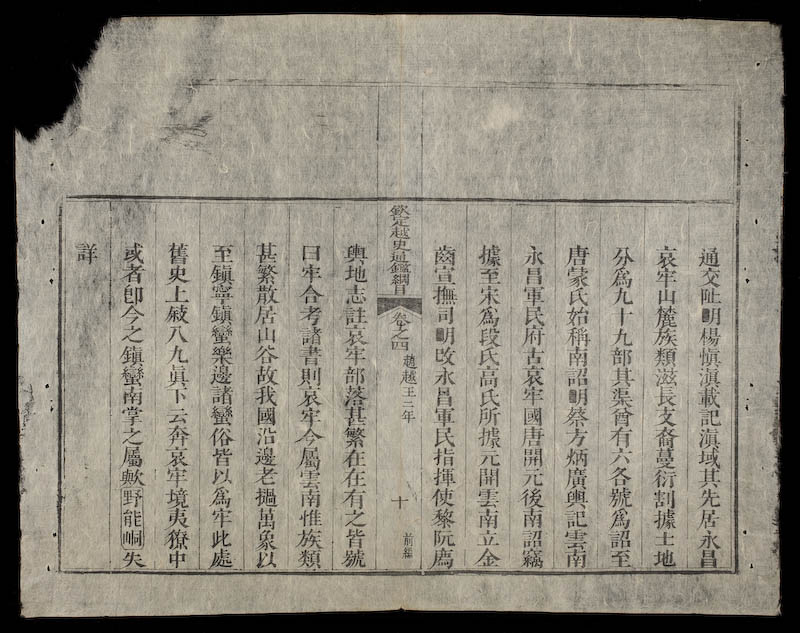 通交阯明楊愼滇載記滇域其先居永昌
哀牢山麓族類滋長支裔蔓衍割據土地
分爲九十九部其渠酋有六各號爲詔至
唐蒙氏始稱南詔明蔡方炳廣輿記雲南
永昌軍民府古哀牢國唐開元後南詔竊
據至宋爲段氏高氏所據元開雲南立金
齒宣撫司明改永昌軍民指揮使黎阮廌
欽定越史通鑑綱目 卷之四 趙越王二年 十 前編
輿地志註哀牢部落甚繁在在有之皆號
曰牢合考諸書則哀牢今屬雲南惟族類
甚繁散居山谷故我國沿邊老撾萬象以
至鎮寧鎮蠻樂邊諸蠻俗皆以爲牢此處
舊史上敍八九眞下云奔哀牢境夷獠中
或者卽今之鎮蠻南掌之屬歟野能峒失
詳